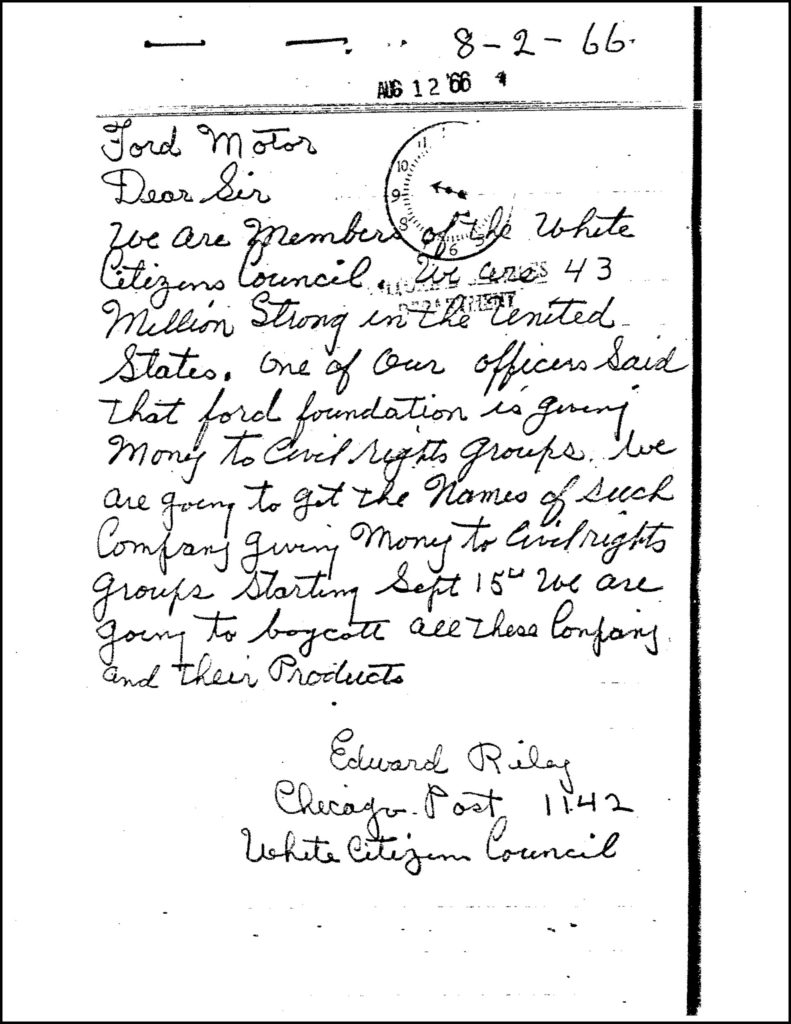 8-2-66.
AUG 12 '66
Ford Motor
Dear Sir
11
10
9
8
6
5
We are Members of the White
Citizens Council. We are 43
DEPARTMENT
Million Strong in the United
States. One of Our officers Said
that ford foundation is giving
Money to Civil rights Groups. We
are going to get the Names of such
Company giving Money to Civil rights
Groups Starting Sept 15th We are
going to boycott all these Company
and their Products
Edward Riley
Chicago Post 1142
White Citizens Council